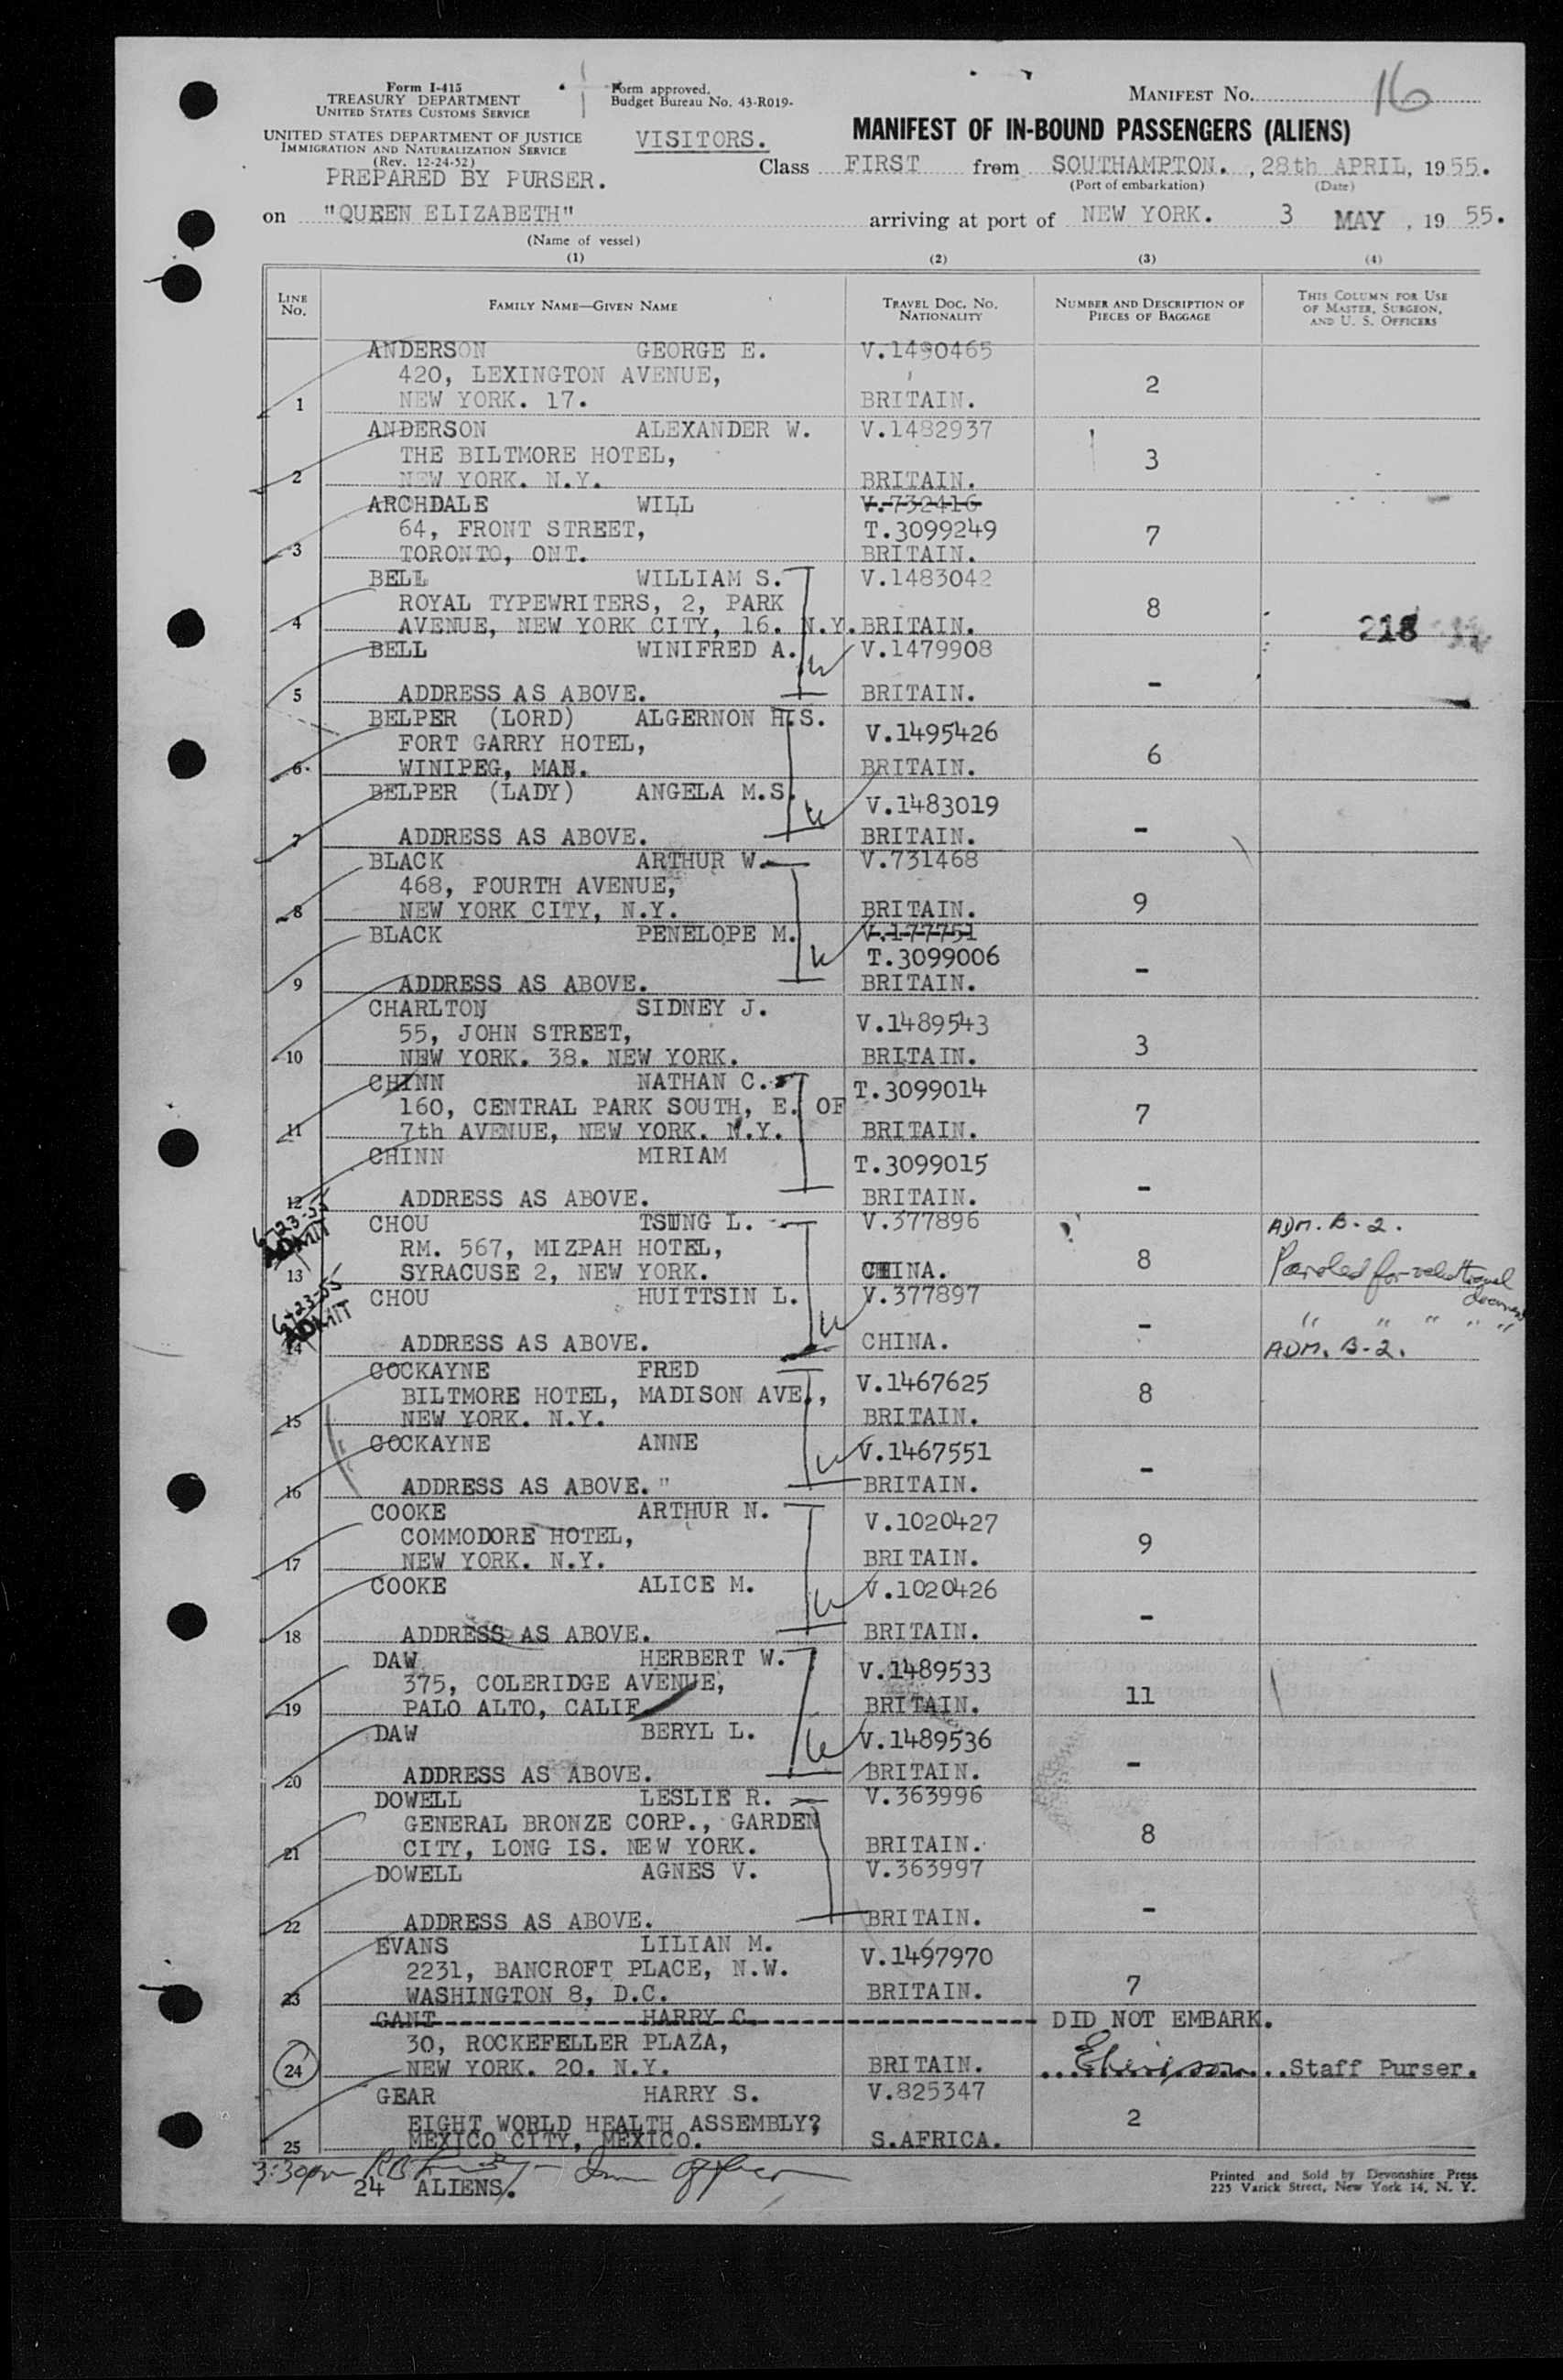 Form I-415
TREASURY DEPARTMENT
UNITED STATES CUSTOMS SERVICE
UNITED STATES DEPARTMENT OF JUSTICE
IMMIGRATION AND NATURALIZATION SERVICE
(Rev. 12-24-52)
PREPARED BY PURSER.
Form approved.
Budget Bureau No. 43-R019-
VISITORS.
MANIFEST NO. 16
MANIFEST OF IN-BOUND PASSENGERS (ALIENS)
Class FIRST from SOUTHAMPTON. , 28th APRIL, 1955.
(Port of embarkation) (Date)
on "QUEEN ELIZABETH" arriving at port of NEW YORK. 3 MAY , 19 55.
(Name of vessel)
(1) (2) (3) (4)
LINE NO. FAMILY NAME—GIVEN NAME TRAVEL DOC. NO. NATIONALITY NUMBER AND DESCRIPTION OF PIECES OF BAGGAGE THIS COLUMN FOR USE OF MASTER, SURGEON, AND U. S. OFFICERS
ANDERSON GEORGE E. V.1490465
420, LEXINGTON AVENUE, 2
1 NEW YORK. 17. BRITAIN.
ANDERSON ALEXANDER W. V.1482937
THE BILTMORE HOTEL, 3
2 NEW YORK. N.Y. BRITAIN.
ARCHDALE WILL V.732416
64, FRONT STREET, T.3099249 7
3 TORONTO, ONT. BRITAIN.
BELL WILLIAM S. V.1483042
ROYAL TYPEWRITERS, 2, PARK 8
4 AVENUE, NEW YORK CITY, 16. N.Y. BRITAIN. 218
BELL WINIFRED A. V.1479908
5 ADDRESS AS ABOVE. BRITAIN. -
BELPER (LORD) ALGERNON H.S. V.1495426
FORT GARRY HOTEL, 6
6 WINIPEG, MAN. BRITAIN.
BELPER (LADY) ANGELA M.S. V.1483019
7 ADDRESS AS ABOVE. BRITAIN. -
BLACK ARTHUR W. V.731468
468, FOURTH AVENUE, 9
8 NEW YORK CITY, N.Y. BRITAIN.
BLACK PENELOPE M. V.177751
T.3099006 -
9 ADDRESS AS ABOVE. BRITAIN.
CHARLTON SIDNEY J. V.1489543
55, JOHN STREET, 3
10 NEW YORK. 38. NEW YORK. BRITAIN.
CHINN NATHAN C. T.3099014
160, CENTRAL PARK SOUTH, E. OF 7
11 7th AVENUE, NEW YORK. N.Y. BRITAIN.
CHINN MIRIAM T.3099015
12 ADDRESS AS ABOVE. BRITAIN. -
6-23-55 ADMIT
CHOU TSUNG L. V.377896 ADM. B-2.
RM. 567, MIZPAH HOTEL, 8 Paroled for
13 SYRACUSE 2, NEW YORK. CHINA.
6-23-55 ADMIT
CHOU HUITTSIN L. V.377897
- " " " " "
14 ADDRESS AS ABOVE. CHINA. ADM. B-2.
COCKAYNE FRED V.1467625
BILTMORE HOTEL, MADISON AVE., 8
15 NEW YORK. N.Y. BRITAIN.
COCKAYNE ANNE V.1467551
16 ADDRESS AS ABOVE." BRITAIN. -
COOKE ARTHUR N. V.1020427
COMMODORE HOTEL, 9
17 NEW YORK. N.Y. BRITAIN.
COOKE ALICE M. V.1020426
18 ADDRESS AS ABOVE. BRITAIN. -
DAW HERBERT W. V.1489533
375, COLERIDGE AVENUE, 11
19 PALO ALTO, CALIF BRITAIN.
DAW BERYL L. V.1489536
20 ADDRESS AS ABOVE. BRITAIN. -
DOWELL LESLIE R. V.363996
GENERAL BRONZE CORP., GARDEN 8
21 CITY, LONG IS. NEW YORK. BRITAIN.
DOWELL AGNES V. V.363997
22 ADDRESS AS ABOVE. BRITAIN. -
EVANS LILIAN M. V.1497970
2231, BANCROFT PLACE, N.W. 7
23 WASHINGTON 8, D.C. BRITAIN.
GANT HARRY C. DID NOT EMBARK.
30, ROCKEFELLER PLAZA,
24 NEW YORK. 20. N.Y. BRITAIN. Staff Purser.
GEAR HARRY S. V.825347
EIGHT WORLD HEALTH ASSEMBLY? 2
25 MEXICO CITY, MEXICO. S.AFRICA.
3:30pm
24 ALIENS.
Printed and Sold by Devonshire Press
225 Varick Street, New York 14, N. Y.